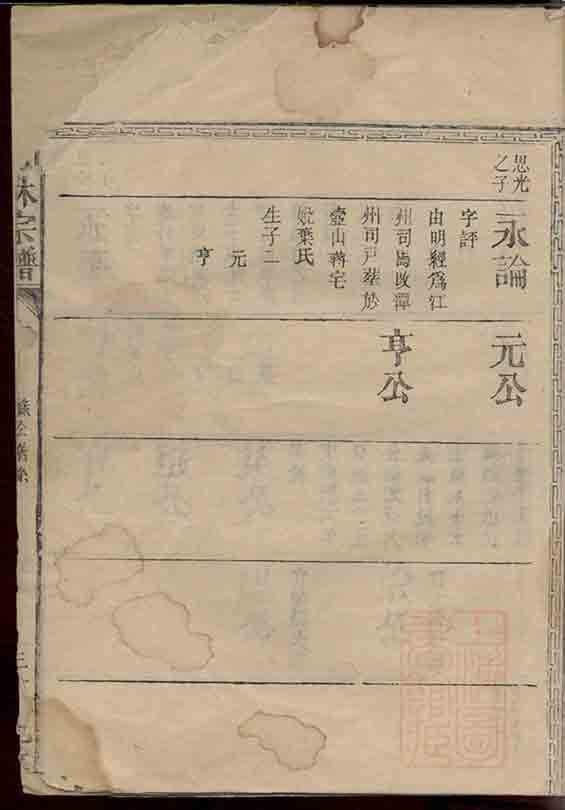 思光
之子
三永論
字評
由明經爲江
州司馬改潭
州司戸葬於
壺山蔣宅
妣葉氏
生子二
元
亨
元公
亨公
宗譜